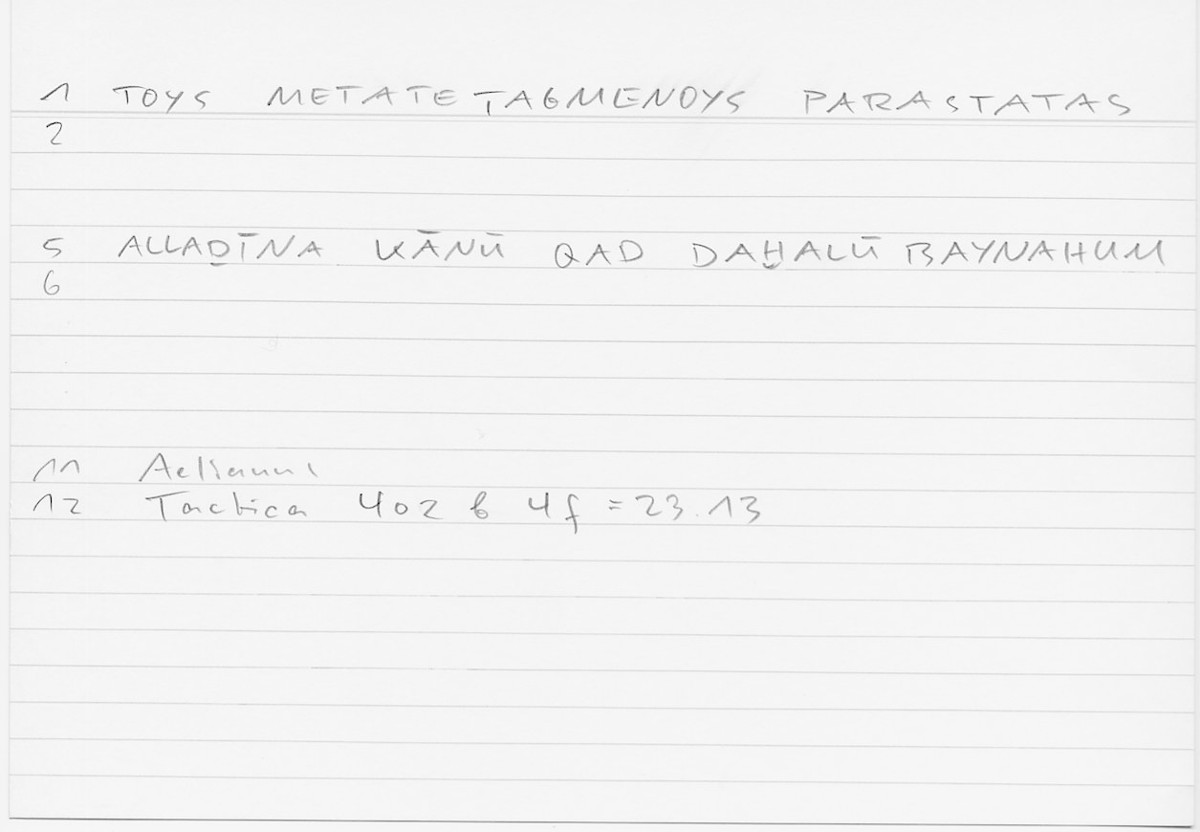 1 TOYS METATETAGMENOYS PARASTATAS
2
5 ALLAḎĪNA KĀNŪ QAD DAḪALŪ BAYNAHUM
6
11 Aelianus
12 Tactica 402 b 4f = 23.13